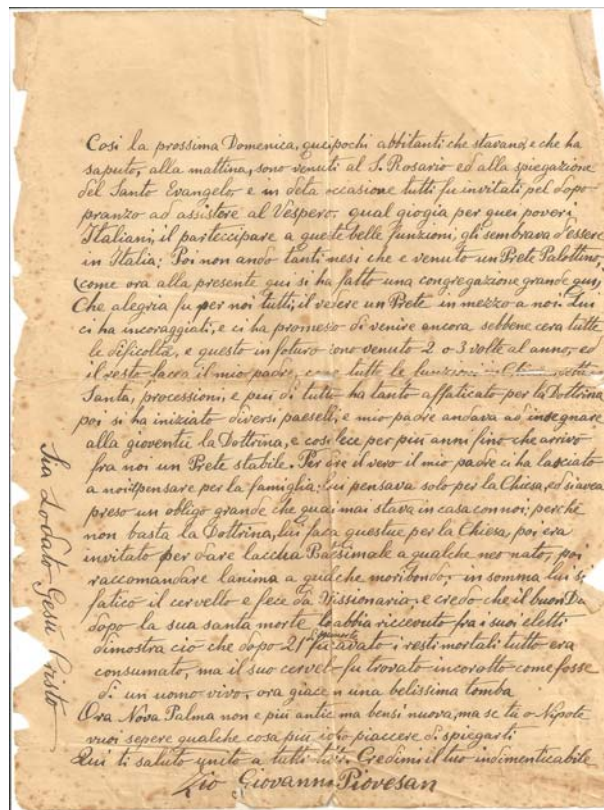 Così la prossima Domenica, quei pochi abbitanti che stavano, e che ha
saputo, alla mattina, sono venuti al S. Rosario ed alla spiegazione
del Santo Evangelo, e in deta occasione tutti fu invitati pel dopo
pranzo ad assistere al Vespero, qual giogia per quei poveri
Italiani, il parteccipare a queste belle funzioni, gli sembrava d'essere
in Italia; Poi non ando tanti mesi che e venuto un Prete Palottino,
(come ora alla presente qui si ha fatto una congregazione grande qui,
Che alegria fu per noi tutti, il vedere un Prete in mezzo a noi. Lui
ci ha incoraggiati, e ci ha promesso di venire ancora sebbene cera tutte
le dificoltà, e questo in futuro sono venuto 2 o 3 volte al anno, ed
il resto facea il mio padre, con tutte le funzioni
Santa, processioni, e piu di tutto ha tanto affaticato per la Dottrina
poi si ha iniziato diversi paeselli, e mio padre andava ad insegnare
alla gioventù la Dottrina, e cosi fece per piu anni fino che arrivo
fra noi un Prete stabile. Per dire il vero il mio padre ci ha lasciato
a noi pensare per la famiglia; lui pensava solo per la Chiesa, ed si avea
preso un obligo grande che quasi mai stava in casa con noi; perchè
non basta la Dottrina, lui facea questue per la Chiesa, poi era
invitato per dare lacqua Batesimale a qualche neo nato, poi
raccomandare lanima a qualche moribondo, in somma lui si
faticò il cervello e fece da Missionario e credo che il buon Dio
dopo la sua santa morte lo abbia riccevuto fra i suoi eletti
dimostra ciò che dopo 21 di morte fu cavato i resti mortali tutto era
consumato, ma il suo cervelo fu trovato incorotto come fosse
di un uomo vivo, ora giace in una belissima tomba
Ora Nova Palma non e piu antic ma bensi nuova, ma se tu o Nipote
vuoi sepere qualche cosa piu io ò piaccere di spiegarti
Qui ti saluto unito a tutti Credimi il tuo indimenticabile
Zio Giovanni Piovesan
Sia Lodato Gesù Cristo